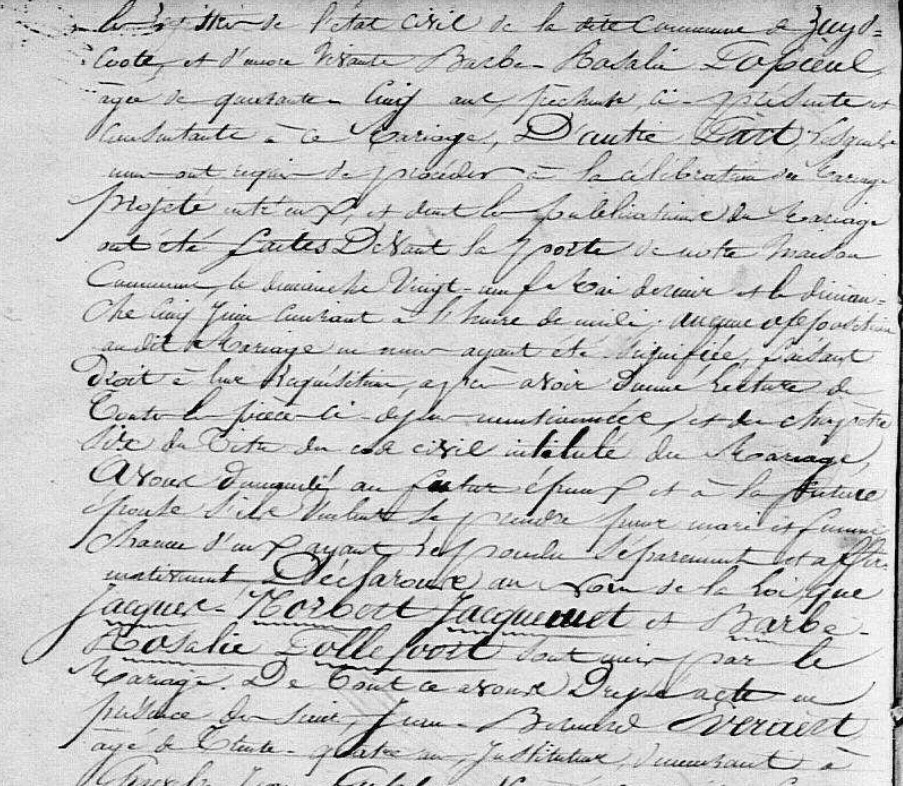 les registres de l'état civil de la dite Commune de Zuyd=
Coote, et d'encore Vivante Barbe-Rosalie Lapieul,
âgée de quarante-Cinq ans, pêcheuse, ci-présente et
Consentante à ce Mariage, D'autre Part, Lesquels
nous ont requis de procéder à la célébration du Mariage
projeté entr'eux, et dont les publications du Mariage
ont été faites Devant la porte de notre Maison
Commune, le dimanche Vingt-neuf Mai dernier et le diman-
che Cinq Juin Courant à l'heure de midi; aucune opposition
audit Mariage ne nous ayant été signifiée, faisant
Droit à leur Réquisition, après avoir Donné lecture de
Toutes les pièces ci-dessus mentionnées, et du chapitre
six du Titre du code civil intitulé du Mariage,
Avons demandé au futur époux et à la future
épouse s'ils Veulent se prendre pour mari et femme,
chacun d'eux ayant répondu Séparément et affir-
mativement Déclarons, au Nom de la Loi, que
Jacques-Norbert Jacquemet et Barbe-
Rosalie sont unis par le
Mariage. De Tout ce avons Dressé acte en
présence des sieurs, Jean-Bernard Veraert
âgé de Trente-quatre ans, Instituteur, demeurant à